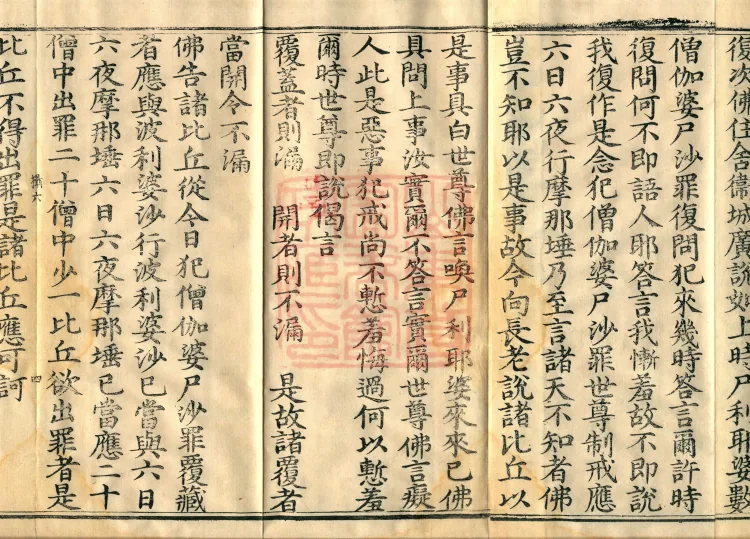 復次佛住舍衛城廣說如上時尸利耶婆數
僧伽婆尸沙罪復問犯來幾時答言爾許時
復問何不即語人耶答言我慚羞故不即說
我復作是念犯僧伽婆尸沙罪世尊制戒應
六日六夜行摩那埵乃至言諸天不知者佛
豈不知耶以是事故今向長老說諸比丘以
是事具白世尊佛言喚尸利耶婆來來已佛
具問上事汝實爾不答言實爾世尊佛言癡
人此是惡事犯戒尚不慙羞悔過何以慙羞
爾時世尊即說偈言
覆蓋者則漏 開者則不漏 是故諸覆者
當開令不漏
佛告諸比丘從今日犯僧伽婆尸沙罪覆藏
者應與波利婆沙行波利婆沙已當與六日
六夜摩那埵六日六夜摩那埵已當應二十
僧中出罪二十僧中少一比丘欲出罪者是
四
比丘不得出罪是諸比丘應可訶